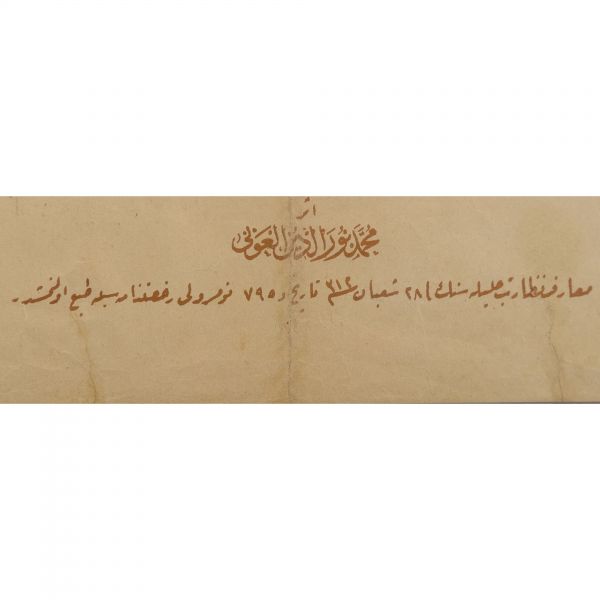 اثر
محمد نور الدين العونى
معارف نظارت جليله سنك ٢٨ شعبان ٣١٢ تاريخ و ٧٩٥ نومرولى رخصتنامه سيله طبع اولنمشدر